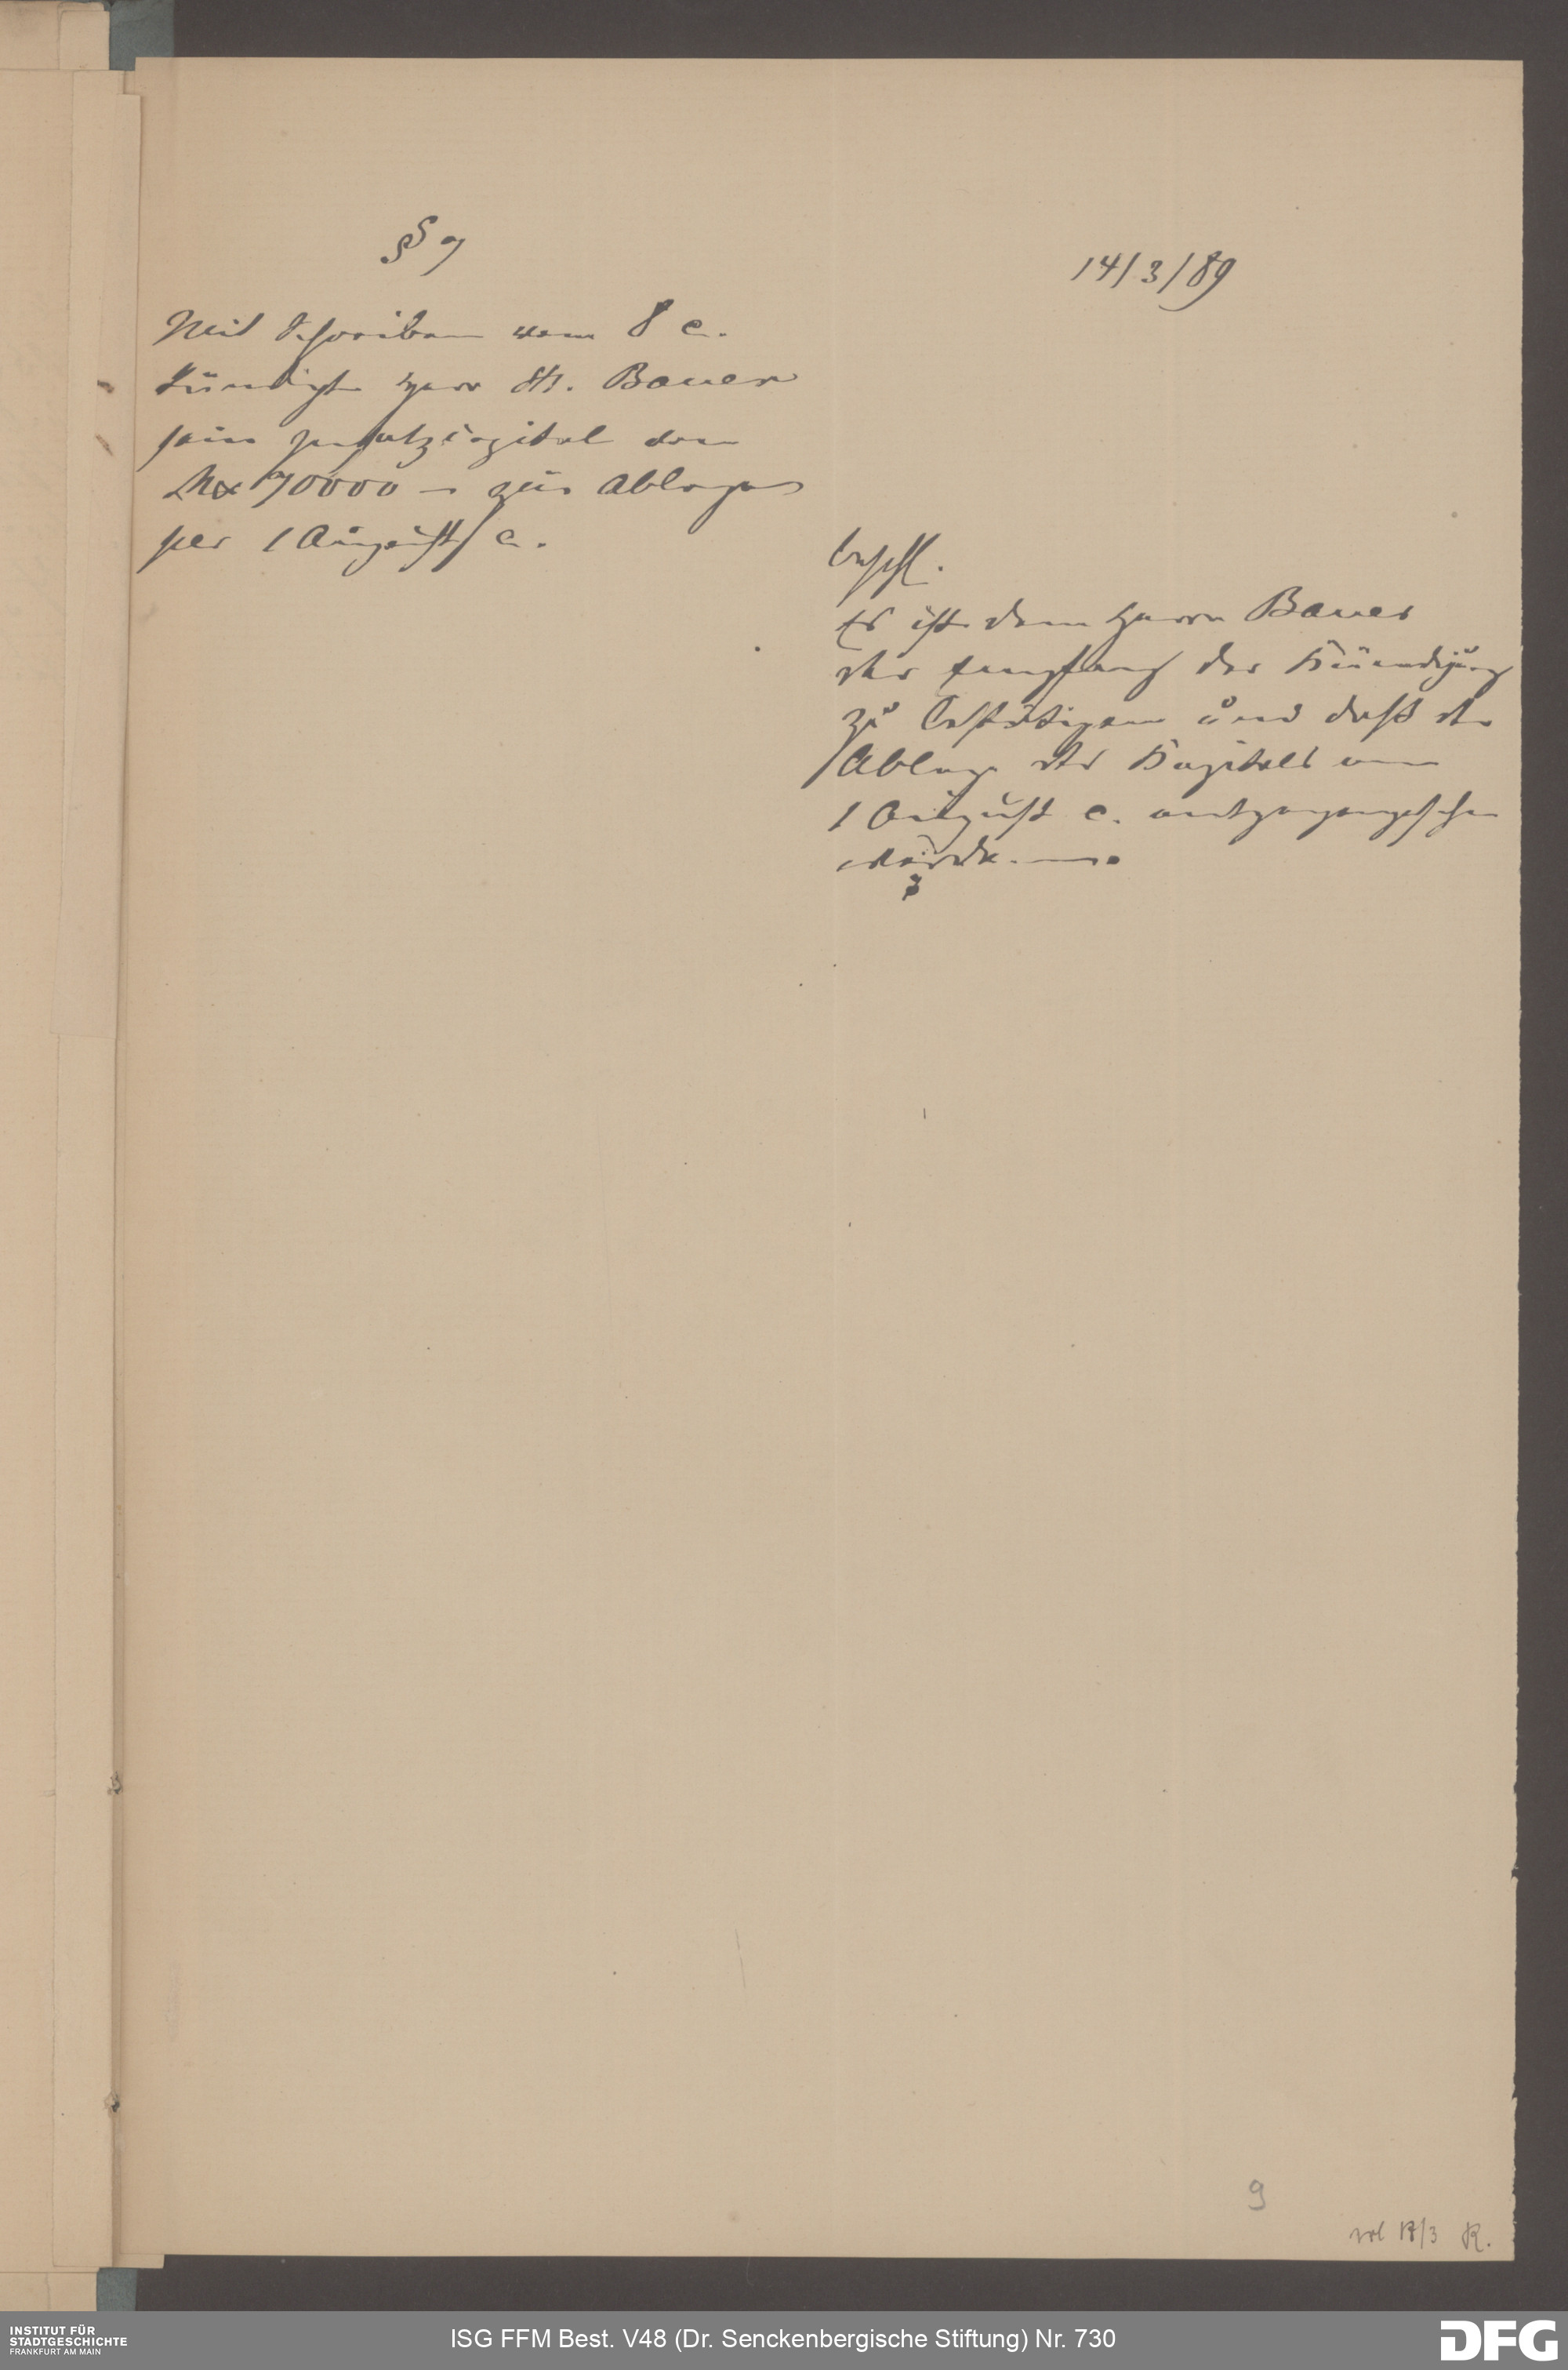 § 7
14/3/89
Mit Schreiben vom 8 c.
kündigt Herr St. Bauer
sein Insatzkapital von
Mx 70000 – zur Ablage
per 1 August c.
beschl.
Es ist dem Herrn Bauer
der Empfang der Kündigung
zu bestätigen und daß der
Ablage des Kapitals am
1 August c. entgegengesehen
würde.
9
17/3 R.
INSTITUT FÜR
STADTGESCHICHTE
FRANKFURT AM MAIN
ISG FFM Best. V48 (Dr. Senckenbergische Stiftung) Nr. 730
DFG